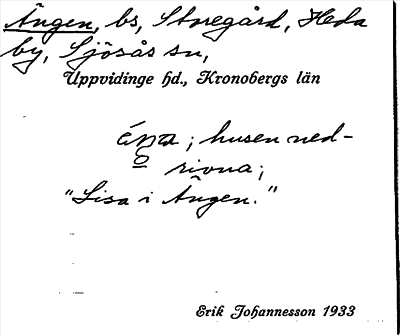 Ängen, bs, Storegård, Heda
by, Sjösås sn,
Uppvidinge hd., Kronobergs län
husen ned-
rivna;
"Lisa i Ängen."
Erik Johannesson 1933